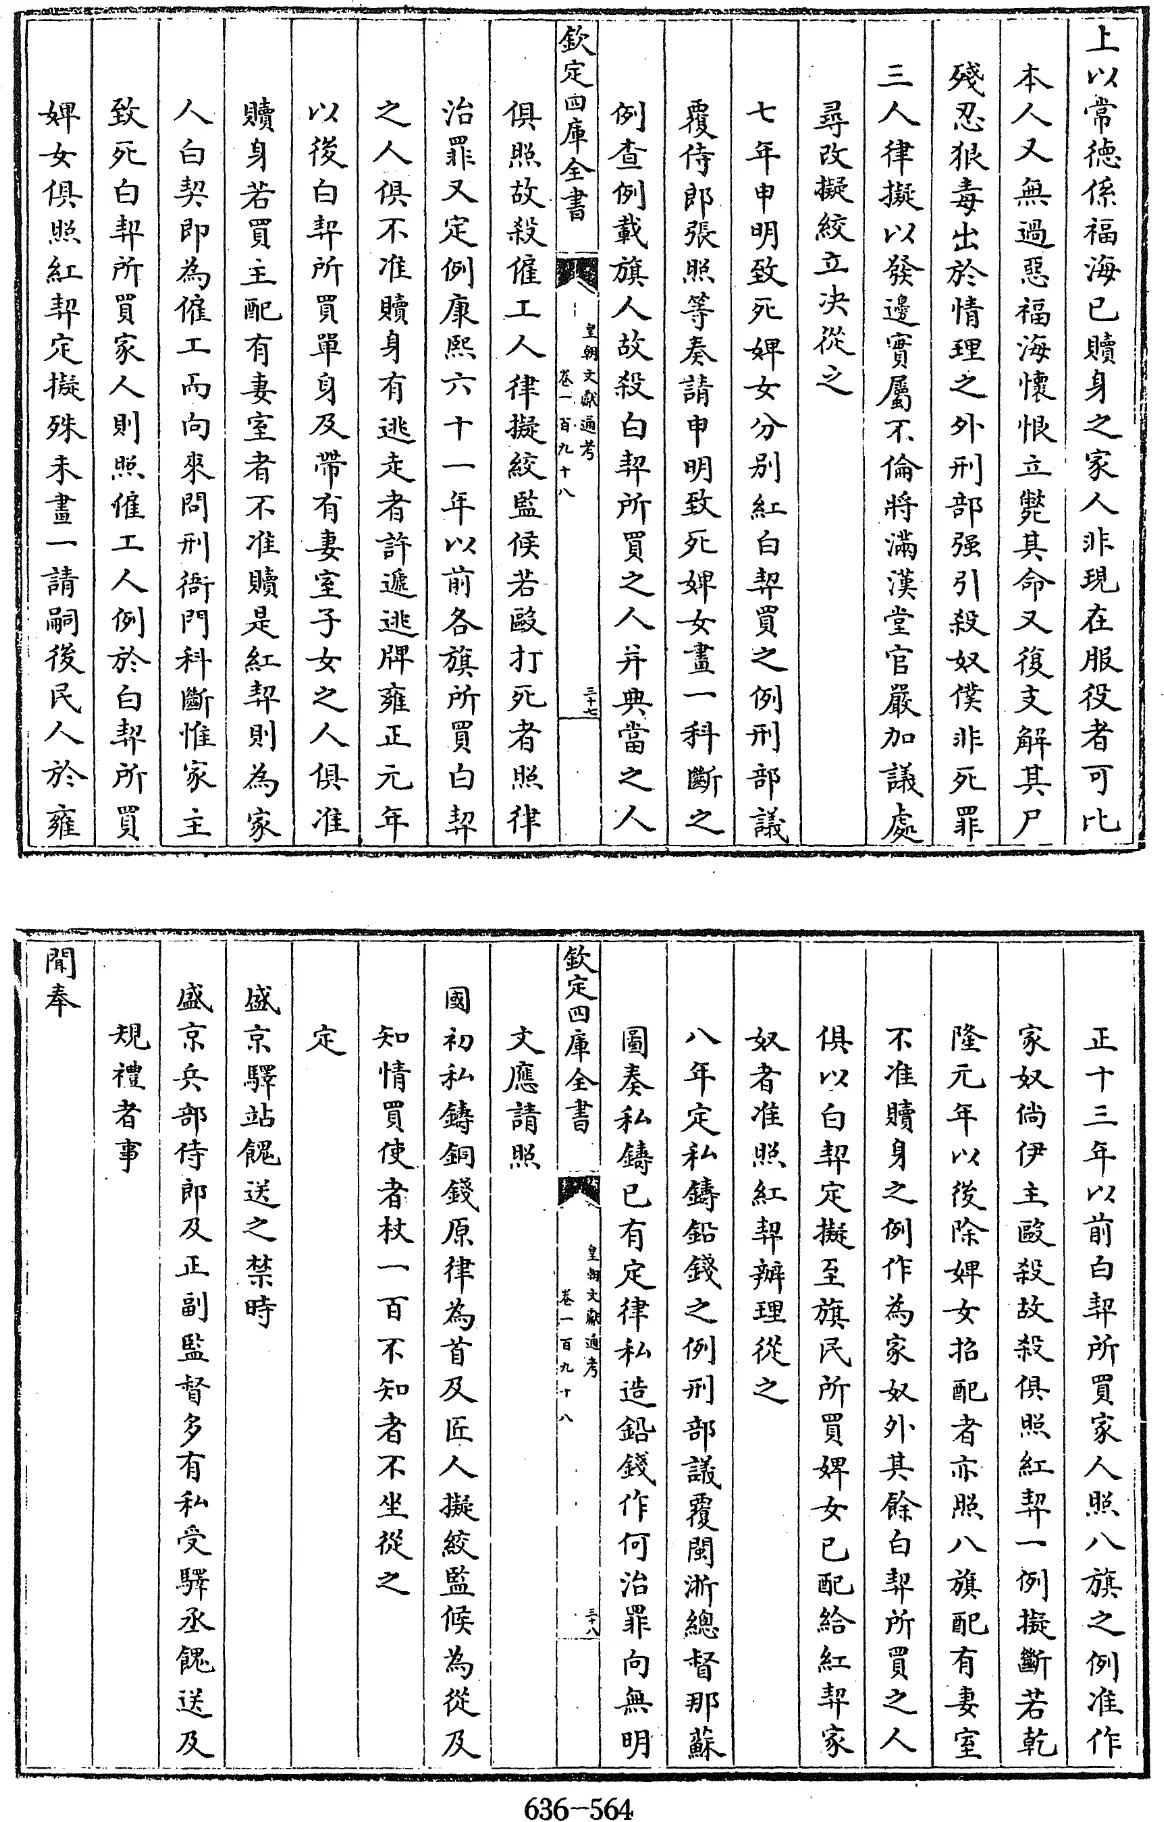 上以常德係福海已贖身之家人非現在服役者可比
本人又無過惡福海懷恨立斃其命又復支解其尸
殘忍狠毒出於情理之外刑部强引殺奴僕非死罪
三人律擬以發邊實屬不倫將滿漢堂官嚴加議處
尋改擬絞立决從之
七年申明致死婢女分别紅白契買之例刑部議
覆侍郎張照等奏請申明致死婢女畫一科斷之
例查例載旗人故殺白契所買之人并典當之人
欽定四庫全書
皇朝文獻通考
卷一百九十八
三十七
俱照故殺僱工人律擬絞監候若毆打死者照律
治罪又定例康熙六十一年以前各旗所買白契
之人俱不准贖身有逃走者許遞逃牌雍正元年
以後白契所買單身及帶有妻室子女之人俱准
贖身若買主配有妻室者不准贖是紅契則為家
人白契即為僱工而向來問刑衙門科斷惟家主
致死白契所買家人則照僱工人例於白契所買
婢女俱照紅契定擬殊未畫一請嗣後民人於雍
正十三年以前白契所買家人照八旗之例准作
家奴倘伊主毆殺故殺俱照紅契一例擬斷若乾
隆元年以後除婢女招配者亦照八旗配有妻室
不准贖身之例作為家奴外其餘白契所買之人
俱以白契定擬至旗民所買婢女已配給紅契家
奴者准照紅契辦理從之
八年定私鑄鉛錢之例刑部議覆閩浙總督那蘇
圖奏私鑄已有定律私造鉛錢作何治罪向無明
欽定四庫全書
皇朝文獻通考
卷一百九十八
三十八
文應請照
國初私鑄銅錢原律為首及匠人擬絞監候為從及
知情買使者杖一百不知者不坐從之
定
盛京驛站餽送之禁時
盛京兵部侍郎及正副監督多有私受驛丞餽送及
規禮者事
聞奉
636-564